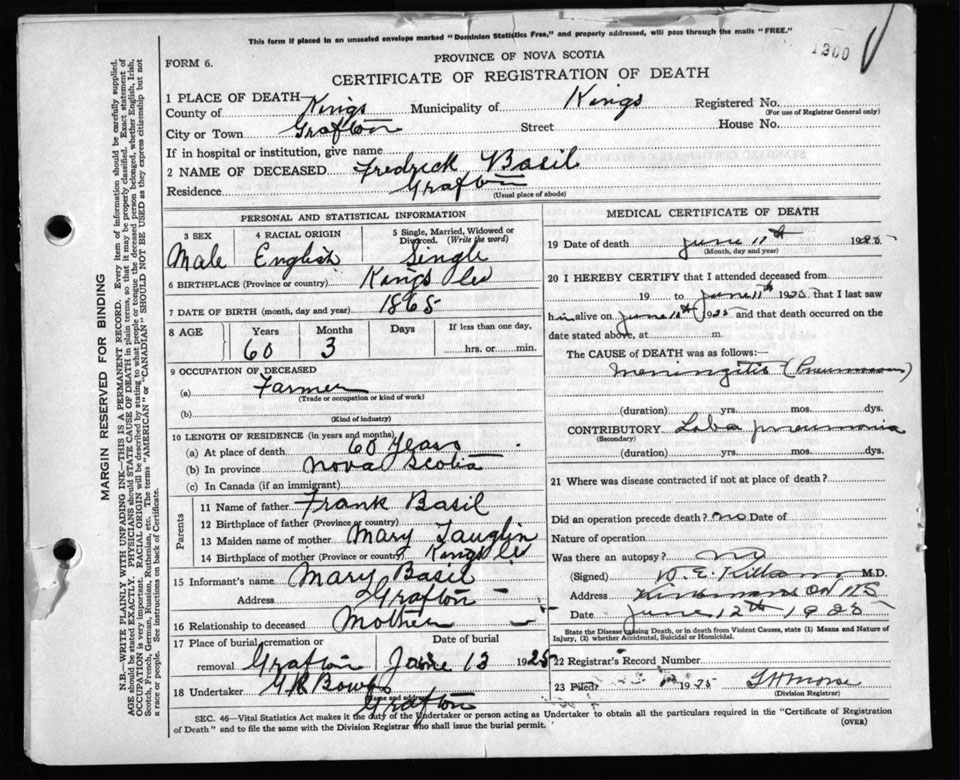 This form if placed in an unsealed envelope marked "Dominion Statistics Free," and properly addressed, will pass through the mails "FREE."
1300
FORM 6.
PROVINCE OF NOVA SCOTIA
CERTIFICATE OF REGISTRATION OF DEATH
1 PLACE OF DEATH—
County of Kings Municipality of Kings Registered No.
(For use of Registrar General only)
City or Town Grafton Street House No.
If in hospital or institution, give name
2 NAME OF DECEASED Fredrick Basil
Residence Grafton
(Usual place of abode)
PERSONAL AND STATISTICAL INFORMATION
3 SEX 4 RACIAL ORIGIN 5 Single, Married, Widowed or Divorced. (Write the word)
Male English Single
6 BIRTHPLACE (Province or country) Kings Co
7 DATE OF BIRTH (month, day and year) 1865
8 AGE Years Months Days If less than one day,
60 3 hrs. or min.
9 OCCUPATION OF DECEASED
(a) Farmer
(Trade or occupation or kind of work)
(b)
(Kind of industry)
10 LENGTH OF RESIDENCE (in years and months)
(a) At place of death 60 Years
(b) In province Nova Scotia
(c) In Canada (if an immigrant)
Parents
11 Name of father Frank Basil
12 Birthplace of father (Province or country)
13 Maiden name of mother Mary
14 Birthplace of mother (Province or country) Kings Co
15 Informant's name Mary Basil
Address Grafton
16 Relationship to deceased Mother
17 Place of burial, cremation or removal Grafton Date of burial June 13 1925
18 Undertaker
Name and address
Grafton
MEDICAL CERTIFICATE OF DEATH
19 Date of death June 11th 1925
(Month, day and year)
20 I HEREBY CERTIFY that I attended deceased from
19 to June 11th 1925 that I last saw
him alive on June 1925 and that death occurred on the
date stated above, at m.
The CAUSE of DEATH was as follows:—
Meningitis
(duration) yrs. mos. dys.
CONTRIBUTORY Loba pneumonia
(Secondary)
(duration) yrs. mos. dys.
21 Where was disease contracted if not at place of death?
Did an operation precede death? no Date of
Nature of operation
Was there an autopsy? no
(Signed) M.D.
Address NS
Date June 12th 1925
State the Disease causing Death, or in death from Violent Causes, state (1) Means and Nature of Injury, (2) whether Accidental, Suicidal or Homicidal.
22 Registrar's Record Number
23 Filed 1925 Morse
(Division Registrar)
SEC. 46—Vital Statistics Act makes it the duty of the Undertaker or person acting as Undertaker to obtain all the particulars required in the "Certificate of Registration
of Death" and to file the same with the Division Registrar who shall issue the burial permit.
(OVER)
MARGIN RESERVED FOR BINDING
N.B.—WRITE PLAINLY WITH UNFADING INK—THIS IS A PERMANENT RECORD. Every item of information should be carefully supplied.
AGE should be stated EXACTLY. PHYSICIANS should STATE CAUSE OF DEATH in plain terms, so that it may be properly classified. Exact statement of
OCCUPATION is very important. RACIAL ORIGIN will be described by stating to what people or tongue the deceased person belonged, whether English, Irish,
Scotch, French, German, Russian, Ruthenian, etc. The terms "AMERICAN" or "CANADIAN" SHOULD NOT BE USED as they express citizenship but not
a race or people. See instructions on back of Certificate.